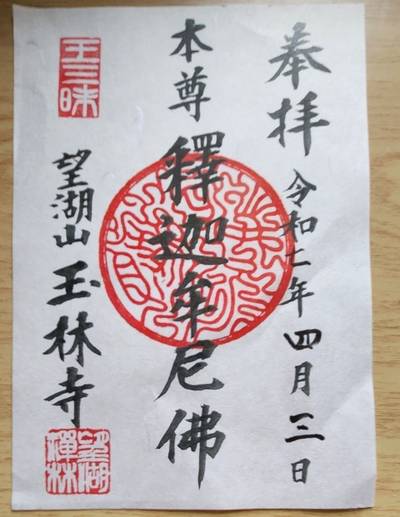 奉拝 令和二年四月三日
本尊 釋迦牟尼佛
王三昧
望湖山 玉林寺
望湖
禪林